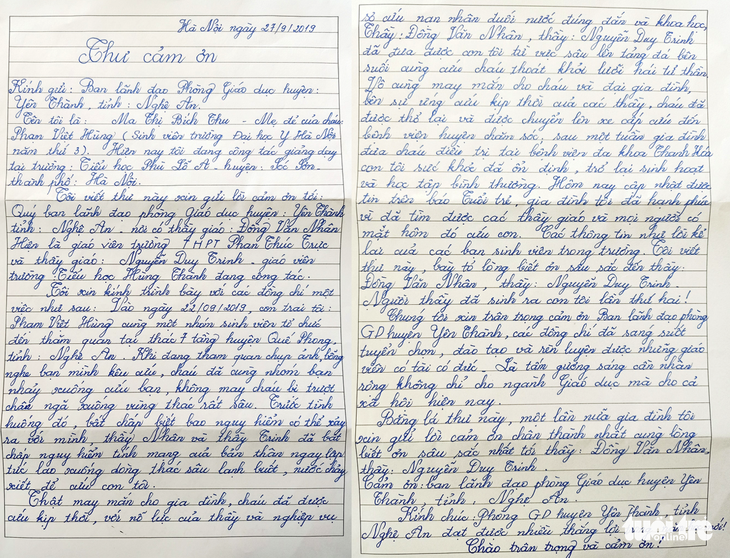 Hà Nội ngày 27/9/2019
Thư cảm ơn
Kính gửi: Ban lãnh đạo Phòng Giáo dục huyện:
Yên Thành, tỉnh: Nghệ An.
Tên tôi là: Ma Thị Bích Thu - Mẹ đẻ của cháu
Phạm Việt Hùng (Sinh viên trường Đại học Y Hà Nội
năm thứ 3). - Hiện nay tôi đang công tác giảng dạy
tại trường: Tiểu học Phù Lỗ A - huyện: Sóc Sơn -
thành phố: Hà Nội.
Tôi viết thư này xin gửi lời cảm ơn tới:
Quý ban lãnh đạo phòng Giáo dục huyện: Yên Thành
tỉnh: Nghệ An - nơi có thầy giáo: Đồng Văn Nhân
Hiện là giáo viên trường THPT Phan Thúc Trực
và thầy giáo: Nguyễn Duy Trinh - giáo viên
trường Tiểu học Hùng Thành đang công tác.
Tôi xin kính trình bày với các đồng chí một
việc như sau: Vào ngày 22/09/2019, con trai tôi:
Phạm Việt Hùng cùng một nhóm sinh viên tổ chức
đến thăm quan tại thác 7 tầng huyện Quế Phong,
tỉnh: Nghệ An. Khi đang tham quan chụp ảnh, bỗng
nghe bạn mình kêu cứu, cháu đã cùng nhóm bạn
nhảy xuống cứu bạn, không may cháu bị trượt
chân ngã xuống vùng thác rất sâu. Trước tình
huống đó, bất chấp biết bao nguy hiểm có thể xảy
ra với mình, thầy Nhân và thầy Trinh đã bất
chấp nguy hiểm tính mạng của bản thân ngay lập
tức lao xuống dòng thác sâu lạnh buốt, nước chảy
xiết, để cứu con tôi.
Thật may mắn cho gia đình, cháu đã được
cứu kịp thời, với nỗ lực của thầy và nghiệp vụ
sơ cứu nạn nhân đuối nước đúng đắn và khoa học,
Thầy: Đồng Văn Nhân, thầy: Nguyễn Duy Trinh
đã đưa được con tôi từ vực sâu lên tảng đá bên
suối cùng cứu cháu thoát khỏi lưỡi hái tử thần.
Vô cùng may mắn cho cháu và đại gia đình,
bên sự ứng cứu kịp thời của các thầy, cháu đã
được thở lại và được chuyển lên xe cấp cứu đến
bệnh viện huyện chăm sóc, sau một tuần gia đình
đưa cháu điều trị tại bệnh viện đa khoa Thanh Hóa
con tôi sức khỏe đã ổn định, trở lại sinh hoạt
và học tập bình thường. Hôm nay cập nhật được
tin trên báo Tuổi trẻ, gia đình tôi đã hạnh phúc
vì đã tìm được các thầy giáo và mọi người có
mặt hôm đó cứu con. Các thông tin như lời kể
lại của các bạn sinh viên trong trường. Tôi viết
thư này, bày tỏ lòng biết ơn sâu sắc đến thầy:
Đồng Văn Nhân, thầy: Nguyễn Duy Trinh.
Người thầy đã sinh ra con tôi lần thứ hai!
Chúng tôi xin trân trọng cảm ơn Ban lãnh đạo phòng
GD huyện Yên Thành, các đồng chí đã sáng suốt
tuyển chọn, đào tạo và rèn luyện được những giáo
viên có tài có đức. Là tấm gương sáng cần nhân
rộng không chỉ cho ngành Giáo dục mà cho cả
xã hội hiện nay.
Bằng lá thư này, một lần nữa gia đình tôi
xin gửi lời cảm ơn chân thành nhất cùng lòng
biết ơn sâu sắc nhất tới thầy: Đồng Văn Nhân,
thầy: Nguyễn Duy Trinh
Cảm ơn ban lãnh đạo phòng Giáo dục huyện Yên
Thành tỉnh Nghệ An.
Kính chúc: Phòng GD huyện Yên Thành, tỉnh
Nghệ An đạt được nhiều thắng lợi
Chào trân trọng và cảm ơn!
tuổi trẻ
online